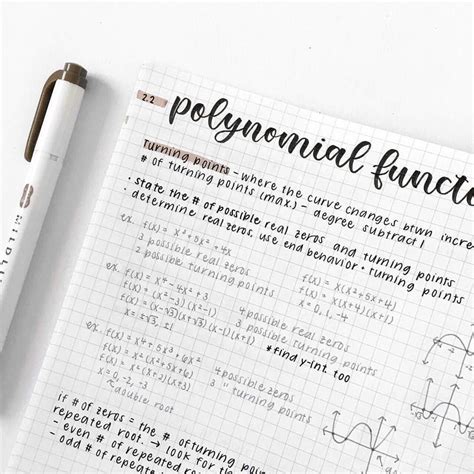 2.2 polynomial functi
Turning points - where the curve changes btwn incre
# of turning points (max.) - degree subtract 1
· state the # of possible real zeros and turning points
· determine real zeros, use end behavior + turning points
ex. f(x) = x³+5x²+4x
3 possible real zeros
2 possible turning points
f(x) = x(x²+5x+4)
f(x) = x(x+4)(x+1)
x = 0, -1, -4
ex. f(x) = x⁴ - 4x² + 3
f(x) = (x²-3)(x²-1)
f(x) = (x-√3)(x+√3)(x-1)(x+1)
x = ±√3, ±1
4 possible real zeros
3 possible turning points
*find y-int. too
ex. f(x) = x⁴+5x³+6x²
f(x) = x²(x²+5x+6)
f(x) = x²(x+2)(x+3)
x = 0, -2, -3
double root
4 possible zeros
3 " turning points
if # of zeros = the # of turning poin
repeated root. → look for t
- even # of repeated root
- odd # of repeate